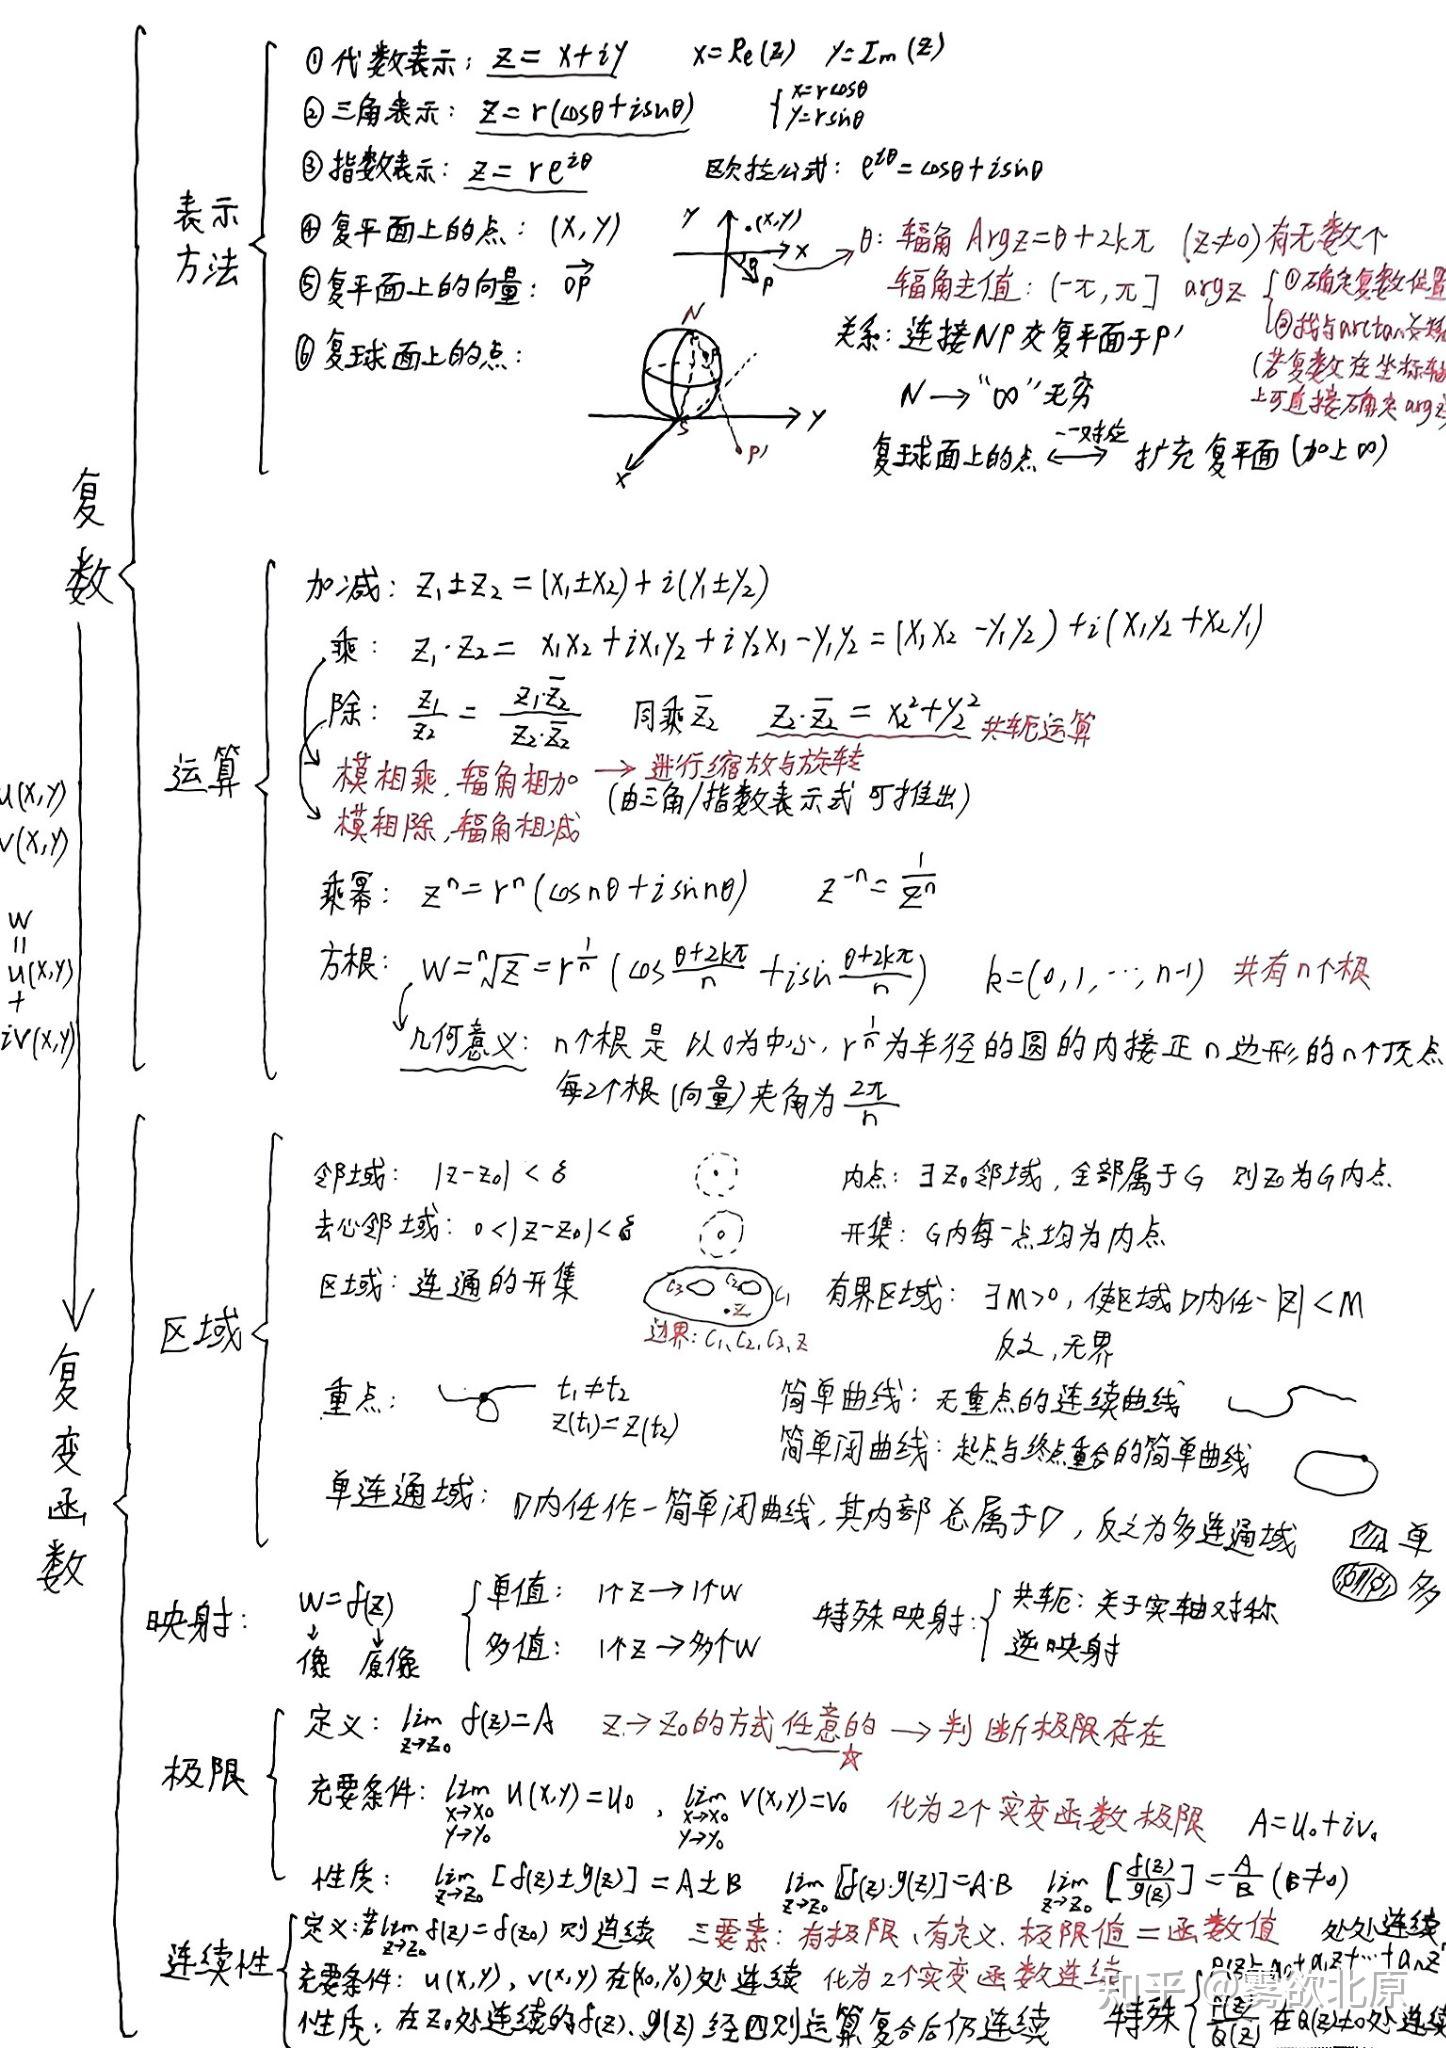 复数
表示方法
①代数表示：z=x+iy  x=Re(z)  y=Im(z)
②三角表示：z=r(cosθ+isinθ)  {x=rcosθ y=rsinθ
③指数表示：z=re^{iθ}  欧拉公式：e^{iθ}=cosθ+isinθ
④复平面上的点：(x,y)
y .(x,y) x θ P
θ：辐角 Argz=θ+2kπ (z≠0) 有无数个
⑤复平面上的向量：OP→
辐角主值：(-π,π] argz {①确定复数位置
②找与arctan
(若复数在坐标轴
上可直接确定argz
⑥复球面上的点：
N P S x y P'
关系：连接NP交复平面于P'
N→“∞”无穷
复球面上的点 ←一一对应→ 扩充复平面(加上∞)
运算
加减：z₁±z₂=(x₁±x₂)+i(y₁±y₂)
乘：z₁·z₂= x₁x₂+ix₁y₂+iy₂x₁-y₁y₂=(x₁x₂-y₁y₂)+i(x₁y₂+x₂y₁)
除：z₁/z₂ = z₁·z̄₂/z₂·z̄₂  同乘z̄₂  z₂·z̄₂=x₂²+y₂² 共轭运算
模相乘，辐角相加 → 进行缩放与旋转
(由三角/指数表示式可推出)
模相除，辐角相减
乘幂：zⁿ=rⁿ(cosnθ+isinnθ)  z⁻ⁿ=1/zⁿ
方根：w=ⁿ√z=r^{1/n}(cos (θ+2kπ)/n +isin (θ+2kπ)/n)  k=(0,1,…,n-1) 共有n个根
几何意义：n个根是以0为中心，r^{1/n}为半径的圆的内接正n边形的n个顶点
每2个根(向量)夹角为2π/n
u(x,y)
v(x,y)
w
=
u(x,y)
+
iv(x,y)
复变函数
区域
邻域：|z-z₀|<δ  内点：∃z₀邻域，全部属于G 则z₀为G内点
去心邻域：0<|z-z₀|<δ  开集：G内每一点均为内点
区域：连通的开集  C₃ C₂ C₁ .z
边界：C₁、C₂、C₃、z
有界区域：∃M>0，使区域D内任一|z|<M
反之，无界
重点：t₁≠t₂
z(t₁)=z(t₂)
简单曲线：无重点的连续曲线
简单闭曲线：起点与终点重合的简单曲线
单连通域：D内任作一简单闭曲线，其内部总属于D，反之为多连通域
单
多
映射：w=f(z)
像 原像
{单值：1个z→1个w
多值：1个z→多个w
特殊映射：{共轭：关于实轴对称
逆映射
极限
定义：lim z→z₀ f(z)=A  z→z₀的方式任意的☆→判断极限存在
充要条件：lim x→x₀ y→y₀ u(x,y)=u₀，lim x→x₀ y→y₀ v(x,y)=v₀ 化为2个实变函数极限 A=u₀+iv₀
性质：lim z→z₀ [f(z)±g(z)]=A±B  lim z→z₀ [f(z)·g(z)]=A·B  lim z→z₀ [f(z)/g(z)]=A/B (B≠0)
连续性
定义：若lim z→z₀ f(z)=f(z₀) 则连续 三要素：有极限、有定义、极限值=函数值 处处连续
充要条件：u(x,y)，v(x,y)在(x₀,y₀)处连续 化为2个实变函数连续
性质：在z₀处连续的f(z)、g(z)经四则运算复合后仍连续
特殊{P(z)=a₀+a₁z+…+aₙz
P(z)/Q(z) 在Q(z)≠0处连续
知乎 @雾欲北原